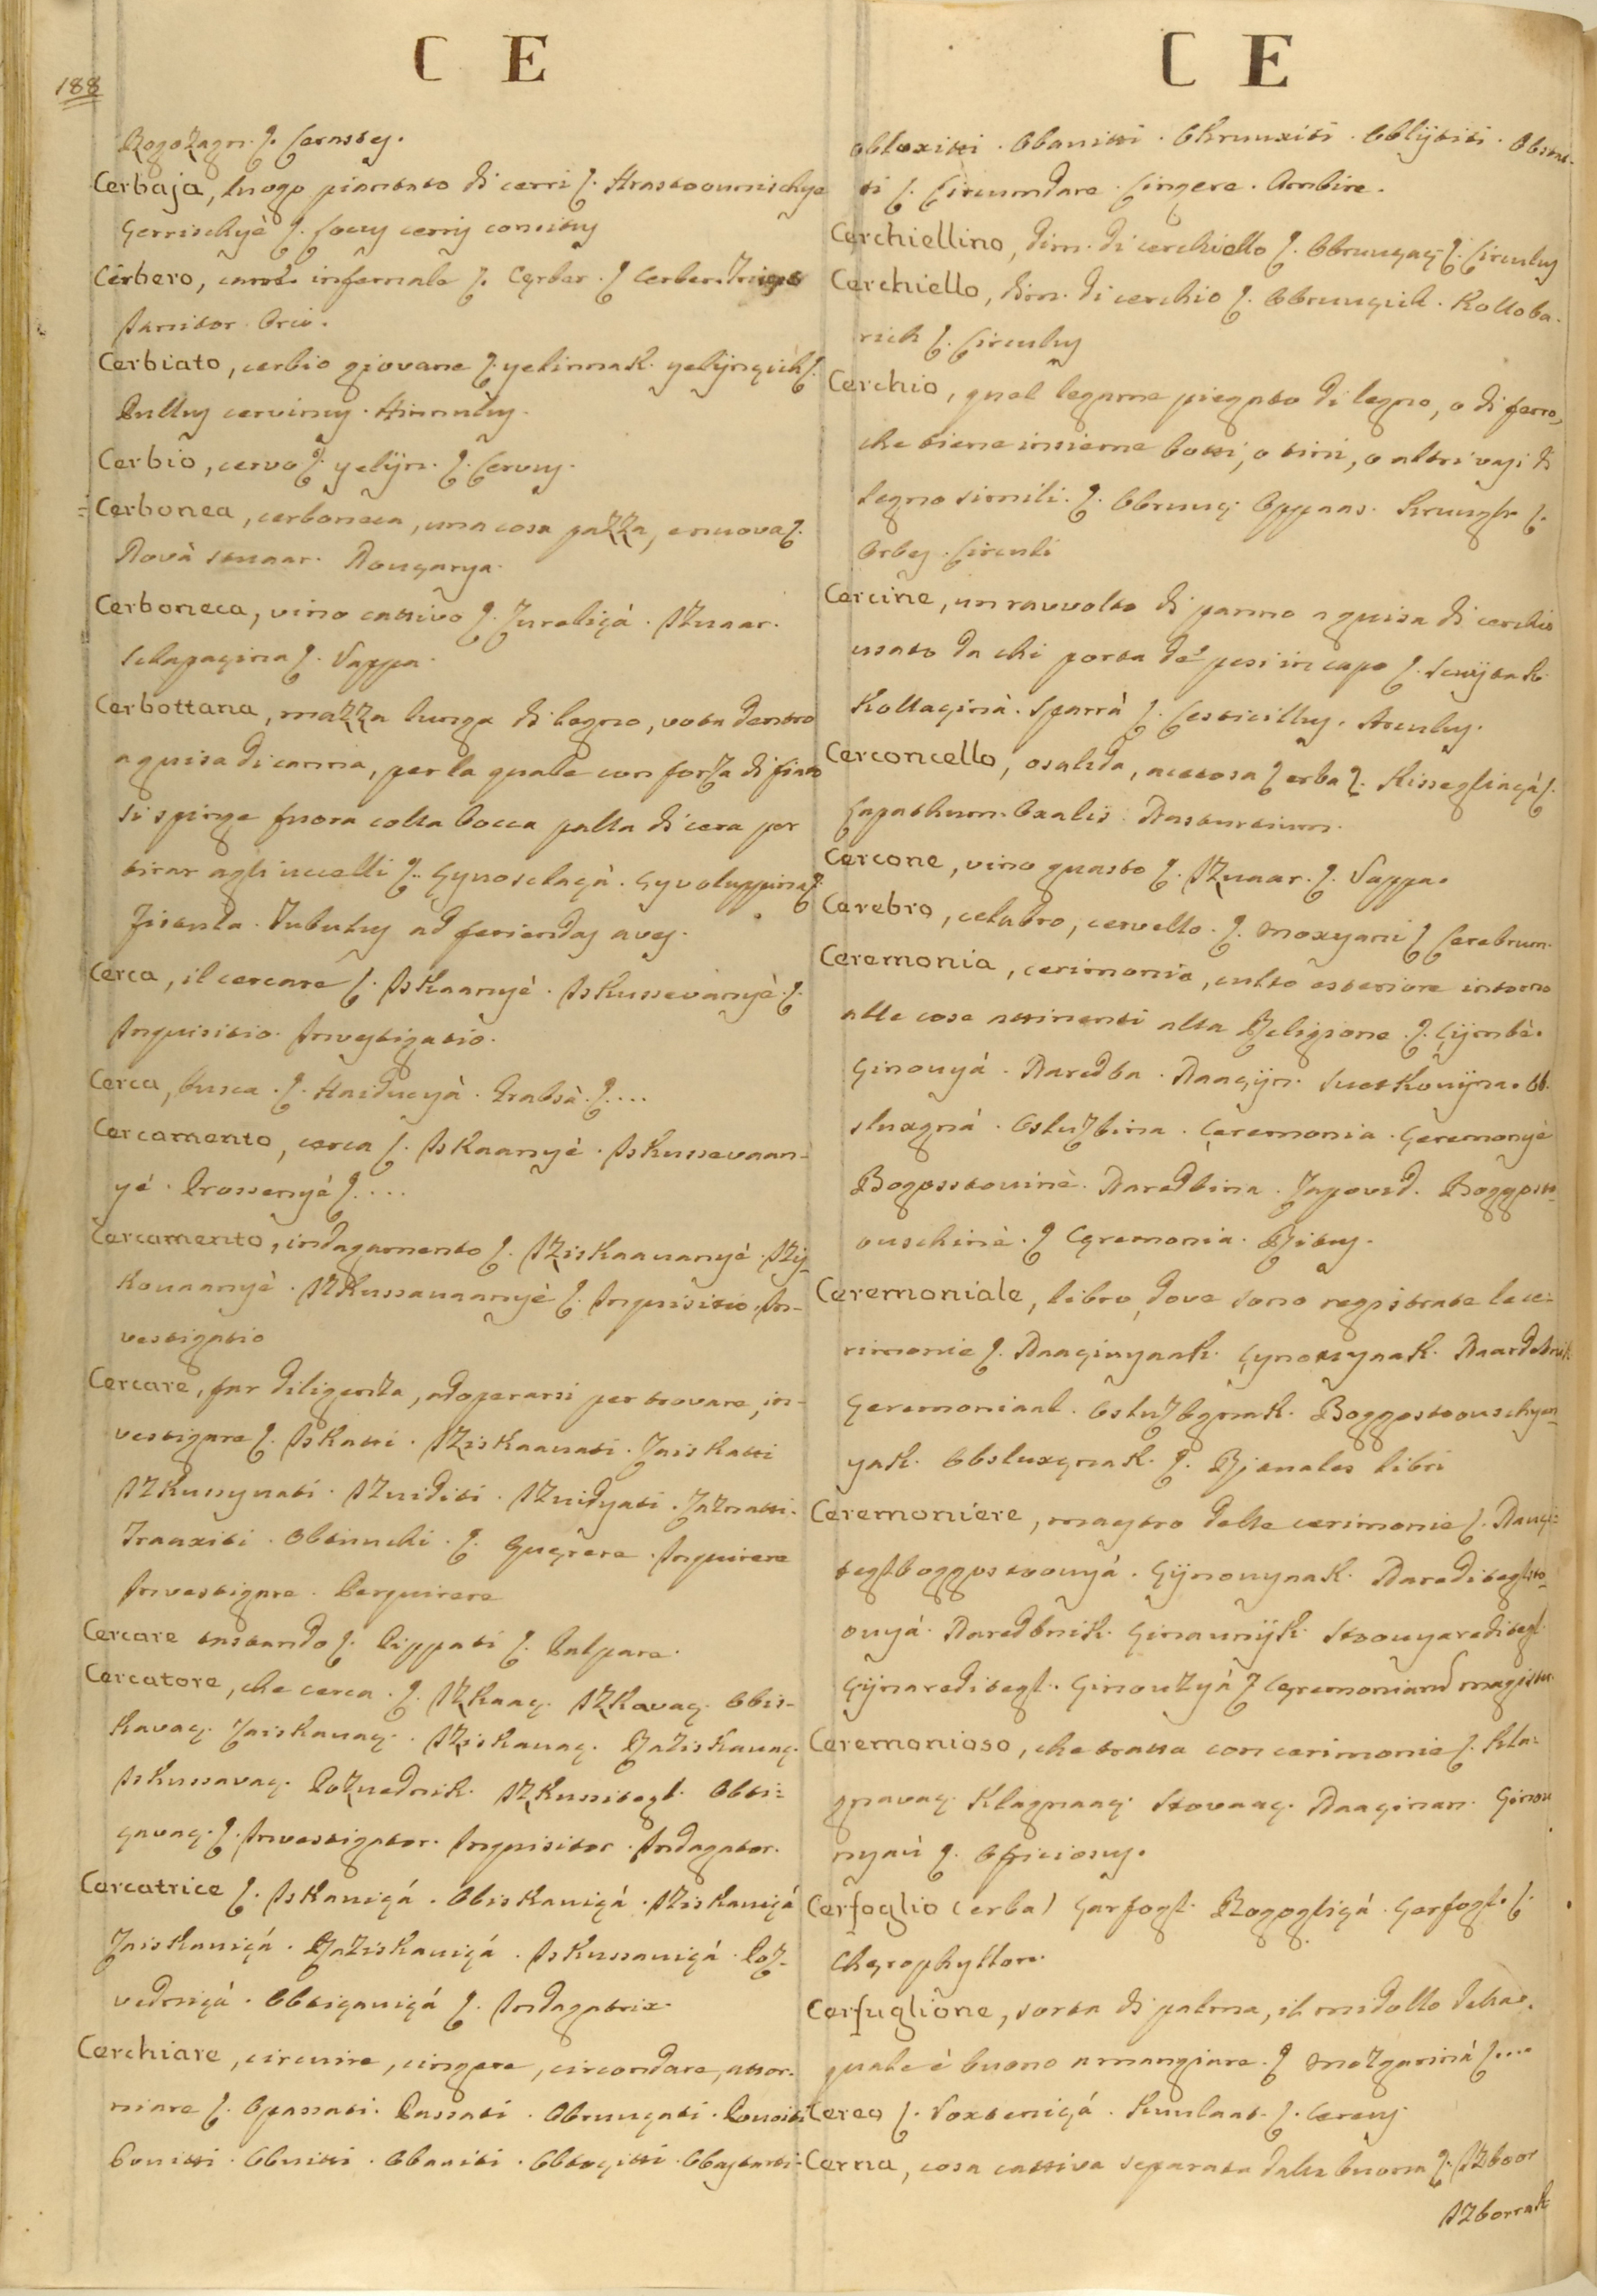 188
C E
Rogoẓagn. ʃ. Cerastes.
Cerbaja, luogo piantato di cerri ʃ. Hrastoournischye
Çerrischyè ʃ. Locus cerris consitus
Cerbero, cane infernale ʃ. Cerber. ʃ Cerber.
Janitor Orci.
Cerbiato, cerbio giovane ʃ. yelinnak. yelijnçich ʃ.
Pullus cervinus. Hinnulus.
Cerbio, cervo ʃ. yelijn. ʃ. Cervus.
Cerbonea, cerboneca, una cosa pazza, e nuova ʃ.
Novà stuaar. Nouçarya.
Cerboneca, vino cattivo ʃ. Zuraliçá. Izuaar.
sclapaçina ʃ. Vappa.
Cerbottana, mazza lunga di legno, vota dentro
a guisa di canna, per la quale con forza di fiato
si spinge fuora colla bocca palla di cera per
tirar agli uccelli ʃ. Çyuosclaçà. çyvoluppina ʃ.
Fistula. Tubulus ad feriendas aves.
Cerca, il cercare ʃ. Iskaanyè. Iskussevànyè. ʃ.
Inquisitio. Investigatio.
Cerca, busca. ʃ. Haiducyà. Grabsà. ʃ....
Cercamento, cerca ʃ. Iskaanyé. Iskussevaan-
yé. Prossenyé ʃ....
Cercamento, indagamento ʃ. Iziskaauanyé. Izis-
kouaanyè. Izkussauaanyè ʃ. Inquisitio. In-
vestigatio
Cercare, far diligenza, adoperarsi per trovare, in-
vestigare ʃ. Iskatti. Iziskaauati. Zaiskatti
Izkussyuati. Izuiditi. Izuidyati. Zaznatti.
Traaxiti. Obtinuchi. ʃ. Quęrere. Inquirere
Investigare. Perquirere
Cercare tastando ʃ. Pippati ʃ. Palpare.
Cercatore, che cerca. ʃ. Izkaaç. Izkavaç. Obis-
kavaç. Zaiskauaç. Iziskauaç. Raziskauaç.
Iskussavaç. Pozuednik. Izkussitegl. Obti-
çavaç. ʃ. Investigator. Inquisitor. Indagator.
Cercatrice ʃ. Iskauiçá. Obiskauiçá. Iziskauiçá
Zaiskauiçá. Raziskauiçá. Iskussauiçá. Poz-
vedniçà. Obtiçauiçá ʃ. Indagatrix.
Cerchiare, circuire, cingere, circondare, attor-
niare ʃ. Opassati. Passati. Obruuçati. Pouoiti
Pouitti. Obuitti. Obaaiti. Obtoçitti. Obastarti-
C E
obloxitti. Obauitti. Okruuxiti. Oblijtiti.
ti ʃ. Circumdare. Cingere. Ambire.
Cerchiellino, dim. di cerchiello ʃ. Obruuçaç ʃ. Circulus
Cerchiello, dim. di cerchio ʃ. Obruuçich. Kolloba-
rich ʃ. Circulus
Cerchio, quel legame piegato di legno, o di ferro,
che tiene insieme botti, o tini, o altri vasi di
legno simili. ʃ. Obruuç. Oppaas. Kruugh ʃ.
Orbes. Circuli
Cercine, un ravvolto di panno a guisa di cerchio
usato da chi porta de' pesi in capo ʃ. Suijtak
Kollaçinà. Sparrà ʃ. Cesticillus. Arculus.
Cerconcello, osalida, acetosa ʃ erba ʃ. Kissegliaçà ʃ.
Lapathum. Oxalis. Nasturtium.
Cercone, vino guasto ʃ. Izuaar. ʃ. Vappa.
Cerebro, celabro, cervello. ʃ. Moxyani ʃ Cerebrum.
Ceremonia, cerimonia, culto esteriore intorno
alle cose attinenti alla Religione. ʃ. Çijmbè.
Çinouyá. Naredba. Naaçijn. Suetkouijna. Ob-
sluxgná. Osluzbina. Çeremonia. Çeremonyè
Bogosstouinè. Naredbina. Zapovid. Boggosto-
ouschinè. ʃ Cęremonia. Ritus.
Ceremoniale, libro, dove sono registrate le ce-
rimonie ʃ. Naaçinyaak. Çynouyaak. Naardebnik
Çeremoniaal. Osluzbgnak. Boggostouschyen-
yak. Obsluxgnak. ʃ. Rituales libri
Ceremoniere, maestro delle cerimonie ʃ. Nauçi-
teglboggostoouyá. Çijnouynak. Nareditegl sto-
ouyá. Naredbnik. Çinaunijk. Stoouyareditegl.
Çijnareditegl. Çinouzyá ʃ Cęremoniarum magister
Ceremonioso, che tratta con cerimonie ʃ. Kla-
gnavaç. Klagnaaç. Stovaaç. Naaçinan. Çinou
nyaù ʃ. Officiosus.
Cerfoglio (erba) Çarfogl. Rogogliçá. Çerfogl. ʃ.
Chęrophyllon.
Cerfuglione, sorta di palma, il midollo della
quale è buono a mangiare. ʃ Mozgarinà ʃ....
Cereo ʃ. Voxteniçá. Kuulaat. ʃ. Cereus
Cerna, cosa cattiva separata dalla buona ʃ. Izboor
Izborrak